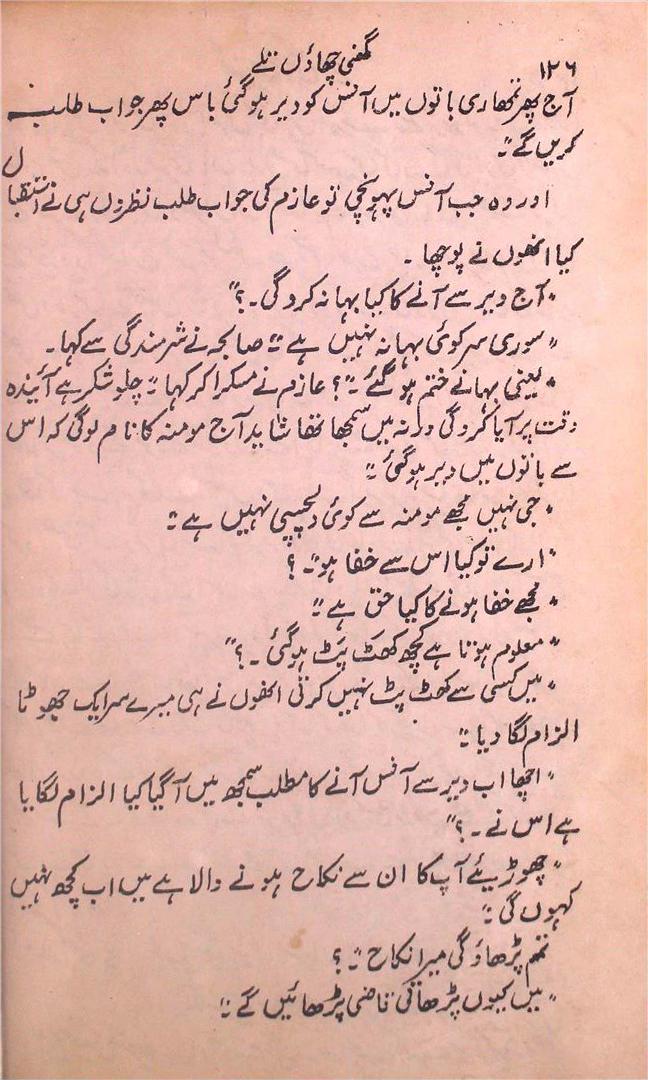 ۱۲۶ گھنی چھاؤں تلے
آج پھر تمھاری باتوں میں آفس کو دیر ہو گئی باس پھر جواب طلب
کریں گے"۔
اور وہ جب آفس پہونچی تو عازم کی جواب طلب نظروں ہی نے استقبال
کیا انھوں نے پوچھا۔
"آج دیر سے آنے کا کیا بہانہ کرو گی۔؟"
"سوری سر کوئی بہانہ نہیں ہے"۔ صالحہ نے شرمندگی سے کہا۔
"یعنی بہانے ختم ہو گئے۔"؟ عازم نے مسکرا کر کہا "چلو شکر ہے آئیندہ
وقت پر آیا کرو گی ورنہ میں سمجھا تھا شاید آج مومنہ کا نام لوگی کہ اس
سے باتوں میں دیر ہو گئی"۔
"جی نہیں مجھے مومنہ سے کوئی دلچسپی نہیں ہے"۔
"ارے تو کیا اس سے خفا ہو"۔؟
"مجھے خفا ہونے کا کیا حق ہے"۔
"معلوم ہوتا ہے کچھ کھٹ پٹ ہو گئی۔؟"
"میں کسی سے کھٹ پٹ نہیں کرتی انھوں نے ہی میرے سر ایک جھوٹا
الزام لگا دیا"۔
"اچھا اب دیر سے آفس آنے کا مطلب سمجھ میں آ گیا کیا الزام لگایا
ہے اس نے۔؟"
"چھوڑیئے آپ کا ان سے نکاح ہونے والا ہے میں اب کچھ نہیں
کہوں گی"۔
تم پڑھاؤ گی میرا نکاح"۔؟
"میں کیوں پڑھاتی قاضی پڑھائیں گے"۔